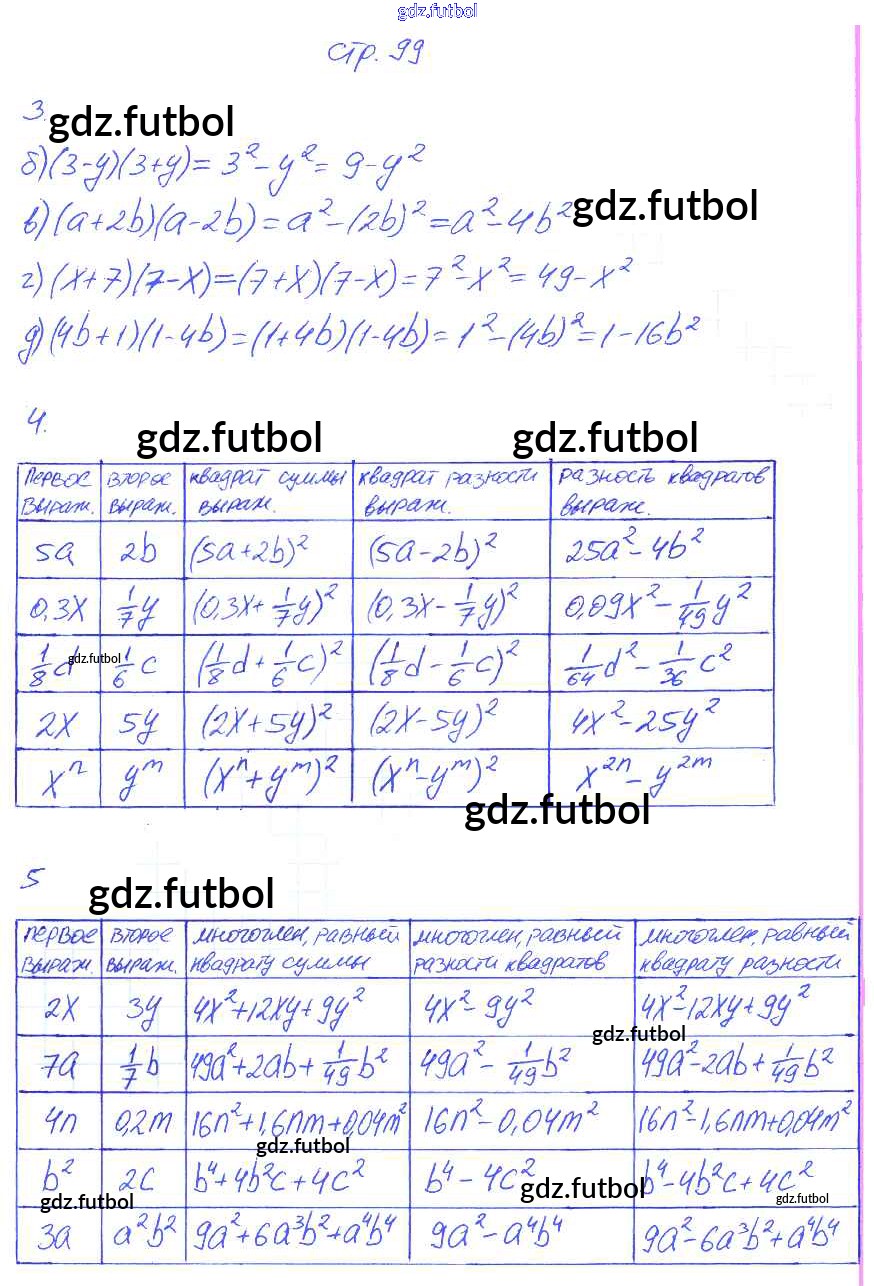 gdz.futbol
стр. 99
3.
gdz.futbol
б) (3-y)(3+y) = 3² - y² = 9 - y²
в) (a+2b)(a-2b) = a² - (2b)² = a² - 4b²
gdz.futbol
г) (x+7)(7-x) = (7+x)(7-x) = 7² - x² = 49 - x²
д) (4b+1)(1-4b) = (1+4b)(1-4b) = 1² - (4b)² = 1 - 16b²
4.
gdz.futbol gdz.futbol
первое выраж. | второе выраж. | квадрат суммы выраж. | квадрат разности выраж. | разность квадратов выраж.
5a | 2b | (5a+2b)² | (5a-2b)² | 25a² - 4b²
0,3x | 1/7 y | (0,3x + 1/7 y)² | (0,3x - 1/7 y)² | 0,09x² - 1/49 y²
1/8 d | 1/6 c | (1/8 d + 1/6 c)² | (1/8 d - 1/6 c)² | 1/64 d² - 1/36 c²
gdz.futbol
2x | 5y | (2x+5y)² | (2x-5y)² | 4x² - 25y²
xⁿ | yᵐ | (xⁿ+yᵐ)² | (xⁿ-yᵐ)² | x²ⁿ - y²ᵐ
gdz.futbol
5
gdz.futbol
первое выраж. | второе выраж. | многочлен, равный квадрату суммы | многочлен, равный разности квадратов | многочлен, равный квадрату разности
2x | 3y | 4x²+12xy+9y² | 4x² - 9y² | 4x²-12xy+9y²
gdz.futbol
7a | 1/7 b | 49a²+2ab+1/49 b² | 49a² - 1/49 b² | 49a²-2ab+1/49 b²
4n | 0,2m | 16n²+1,6nm+0,04m² | 16n² - 0,04m² | 16n²-1,6nm+0,04m²
gdz.futbol
b² | 2c | b⁴+4b²c+4c² | b⁴ - 4c² | b⁴-4b²c+4c²
gdz.futbol gdz.futbol gdz.futbol
3a | a²b² | 9a²+6a³b²+a⁴b⁴ | 9a² - a⁴b⁴ | 9a²-6a³b²+a⁴b⁴